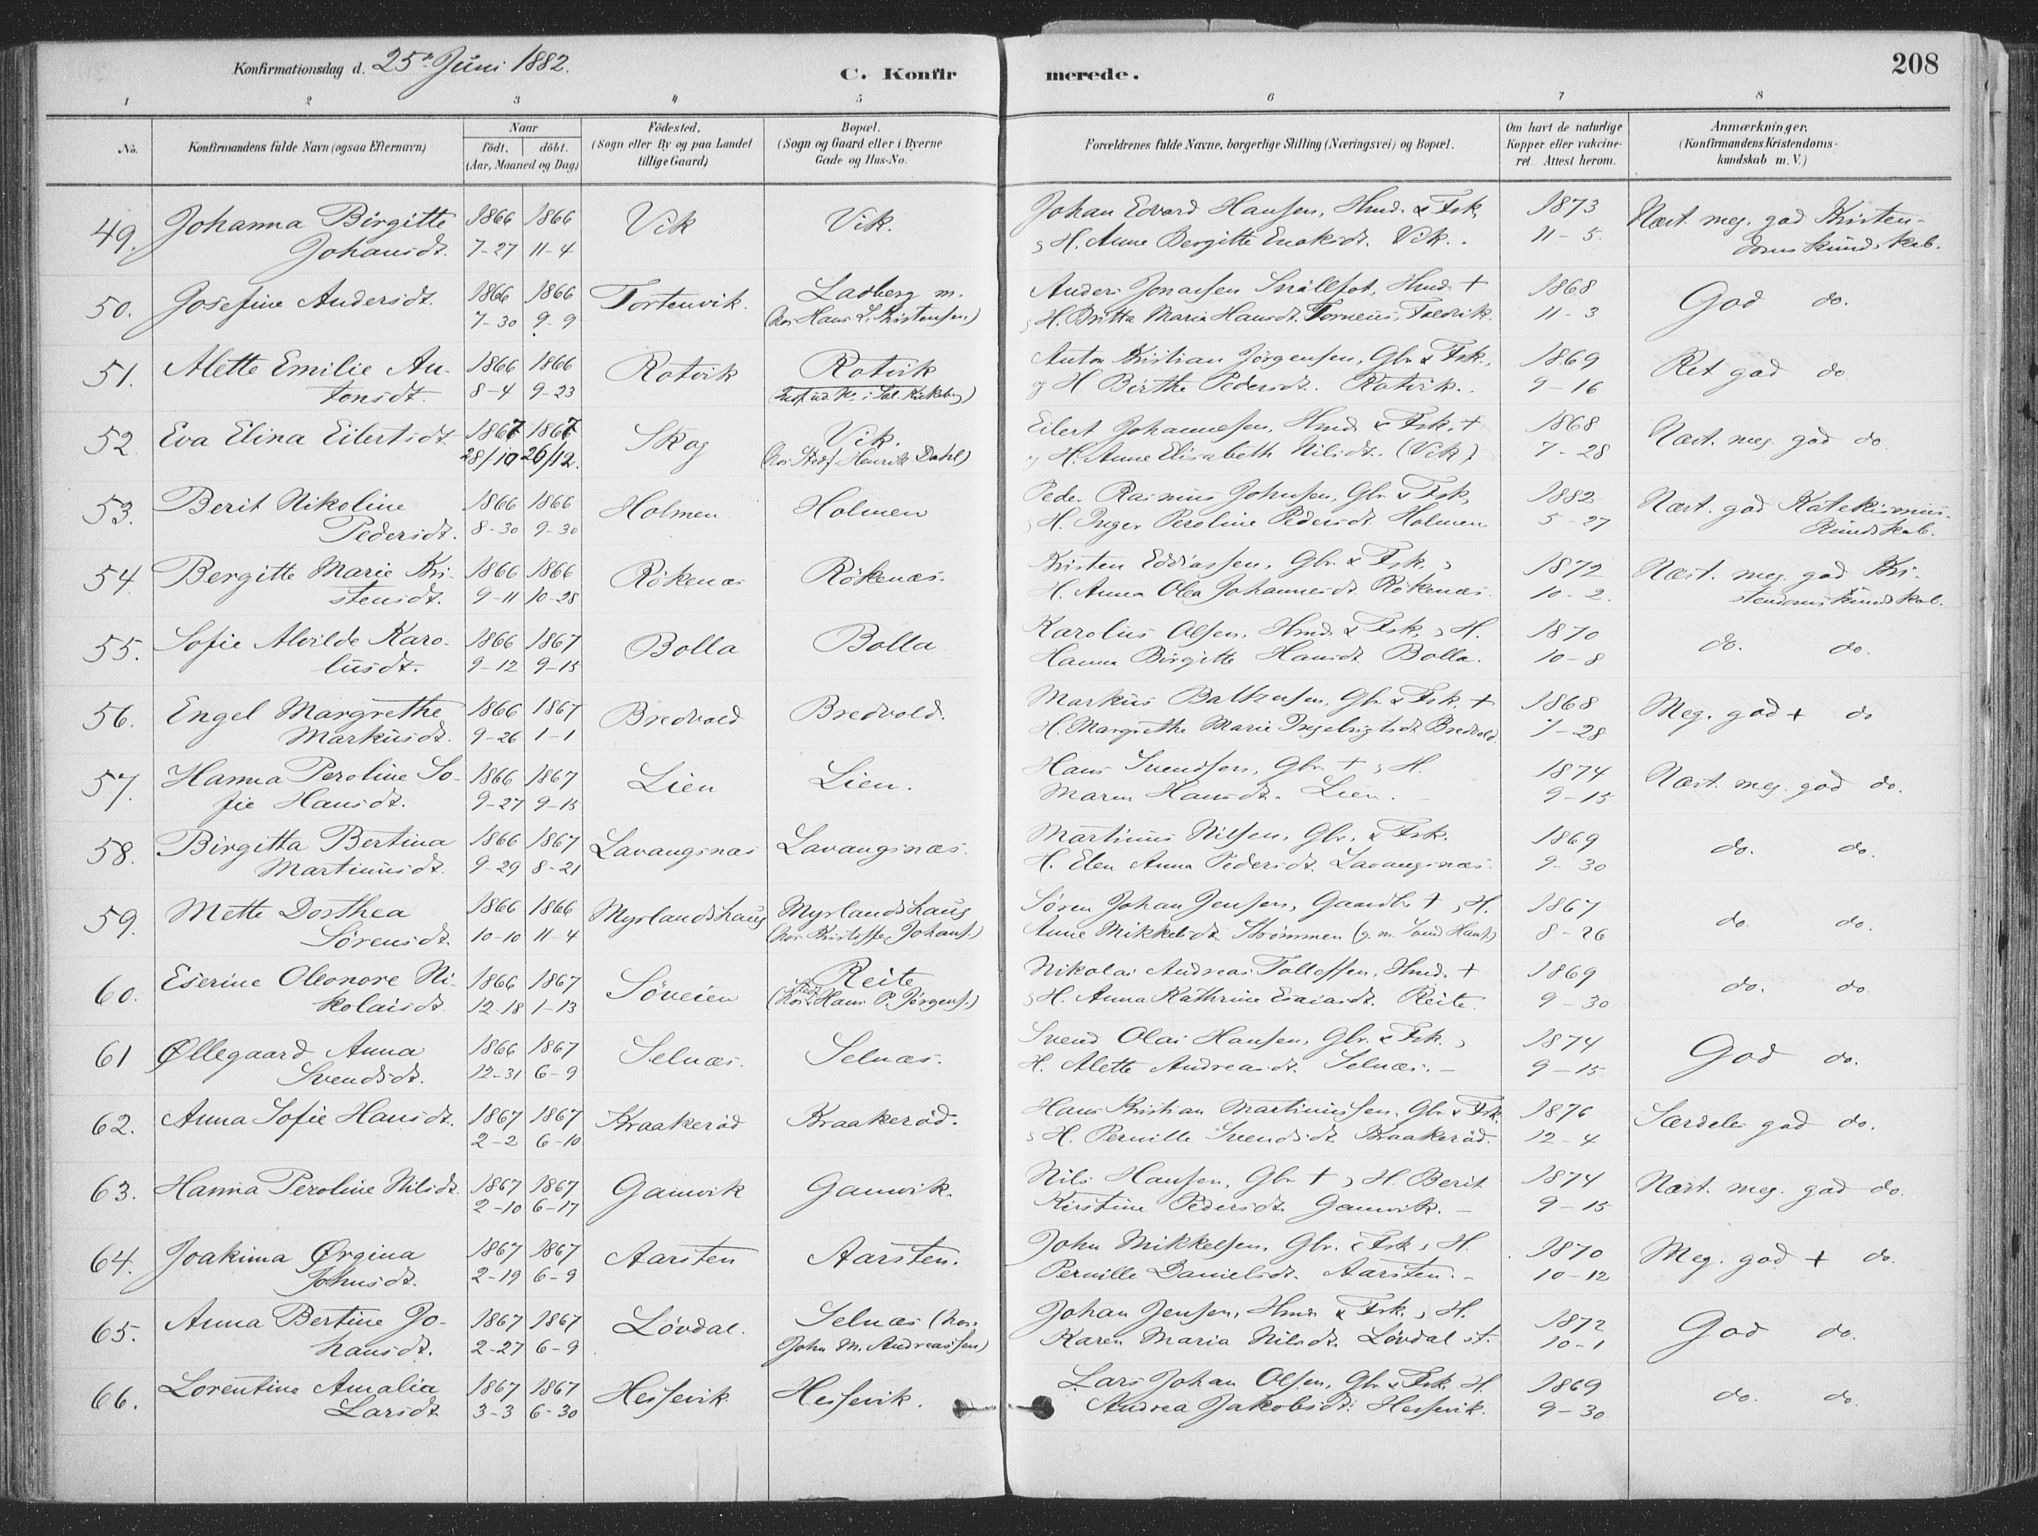 Konfirmationsdag d. 25de Juni 1882.
C. Konfirmerede.
208
1 2 3 4 5 6 7 8
No.
Konfirmandens fulde Navn (ogsaa Efternavn)
Naar
födt. döbt.
(Aar, Maaned og Dag)
Födested.
(Sogn eller By og paa Landet
tillige Gaard)
Bopæl.
(Sogn og Gaard eller i Byerne
Gade og Hus-No.
Forældrenes fulde Navne, borgerlige Stilling (Næringsvei) og Bopæl.
Om havt de naturlige
Kopper eller vakcine-
ret. Attest herom.
Anmærkninger.
(Konfirmandens Kristendoms-
kundskab m. V.)
49. Johanna Birgitte 1866 1866 Vik Vik. Johan Edvard Hansen, Hmd. & Fsk. 1873 Næst. meg. god Kristen-
Johansdt. 7-27 11-4 H. Anne Bergitte Enoksdt. Vik. 11-5. domskundskab.
50. Josefine Andersdt. 1866 1866 Tortenvik. Ladberg m. Anders Jonassen Snällfot, Hmd. + 1868 God do.
7-30 9-9 (hos Hans L. Kristensen) H. Britta Maria Hansdt. Torneus, Foldvik. 11-3
51. Alette Emilie An- 1866 1866 Rotvik Rotvik Anton Kristian Jörgensen, Gbr. & Fsk., 1869 Ret god do.
tonsdt. 8-4 9-23 og H. Birthe Pedersdt. Rotvik. 9-16
52. Eva Elina Eilertsdt. 1867 1867 Skog Vik. Eilert Johannesen, Hmd. & Fsk. + 1868 Næst. meg. god do.
28/10 26/12. (hos Stedf. Henrik Dahl) og H. Anne Elisabeth Nilsdt. (Vik) 7-28
53. Berit Nikoline 1866 1866 Holmen Holmen Peder Rasmus Johnsen, Gbr. & Fsk. 1882 Næst. god Katekismus-
Pedersdt. 8-30 9-30 H. Inger Peroline Pedersdt. Holmen 5-27 kundskab.
54. Bergitte Marie Kri- 1866 1866 Rökenæs Rökenæs. Kristen Eddiassen, Gbr. & Fsk. 1872 Næst. meg. god Kri-
stensdt. 9-11 10-28 H. Anna Olea Johannesdt. Rökenæs. 10-2. stendomskundskab.
55. Sofie Alvilde Karo- 1866 1867 Bolla Bolla Karolius Olsen, Hmd. & Fsk. H. 1870 do. do.
lusdt. 9-12 9-15 Hanna Birgitte Hansdt. Bolla. 10-8
56. Engel Margrethe 1866 1867 Bredvold Bredvold. Markus Baltzersen, Gbr. & Fsk. + 1868 Meg. god + do
Markusdt. 9-26 1-1 H. Margrethe Marie Ingebrigtsdt. Bredvold. 7-28
57. Hanna Peroline So- 1866 1867 Lien Lien. Hans Svendsen, Gbr. + H. 1874 Næst. meg. god do.
fie Hansdt. 9-27 9-15 Maren Hansdt. Lien. 9-15
58. Birgitta Bertina 1866 1867 Lavangsnæs Lavangsnæs. Martinus Nilsen, Gbr. & Fsk. 1869 do. do.
Martinusdt. 9-29 8-21 H. Elen Anna Pedersdt. Lavangsnæs. 9-30
59. Mette Dorthea 1866 1866 Myrlandshaug Myrlandshaug Sören Johan Jensen, Gaardbr. + H. 1867 do do.
Sörensdt. 10-10 11-4 (hos Kristoffer Johans.) Anne Mikkelsdt. Strömmen 8-26
60. Eserine Oleonore Ni- 1866 1867 Söveien Reite Nikolai Andreas Tollefsen, Hmd. + 1869 do. do.
kolaisdt. 12-18 1-13 (hos Stedf. Hans P. Jörgens.) H. Anna Kathrine Esaiasdt. Reite. 9-30
61 Øllegaard Anna 1866 1867 Selnæs. Selnæs. Svend Olai Hansen, Gbr. & Fsk. 1874 God do.
Svendsdt. 12-31 6-9 H. Alette Andreasdt. Selnæs. 9-15
62. Anna Sofie Hansdt. 1867 1867 Kraakeröd Kraakeröd. Hans Kristian Martinussen, Gbr. & Fsk. 1876 Særdeles god do.
2-2 6-10 H. Pernille Svendsdt. Kraakeröd. 12-4
63. Hanna Peroline Nilsdt. 1867 1867 Gamvik Gamvik. Nils Hansen, Gbr. + H. Berit 1874 Næst. meg. god do.
2-10 6-17 Kirstine Pedersdt. Gamvik. 9-15
64. Joakima Ørgina 1867 1867 Aarsten Aarsten. John Mikkelsen, Gbr. & Fsk. H. 1870 Meg. god + do.
Johnsdt. 2-19 6-9 Pernille Danielsdt. Aarsten. 10-12
65. Anna Bertine Jo- 1867 1867 Lövdal. Selnæs (hos Johan Jensen, Hmd. & Fsk. H. 1872 God do.
hansdt. 2-27 6-9 John M. Andreassen) Karen Maria Nilsdt. Lövdal st. 10-1
66. Lorentine Amalia 1867 1867 Hessevik Hessevik. Lars Johan Olsen, Gbr. & Fsk. H. 1869 do. do.
Larsdt 3-3 6-30 Andrea Jakobsdt. Hessevik. 9-30